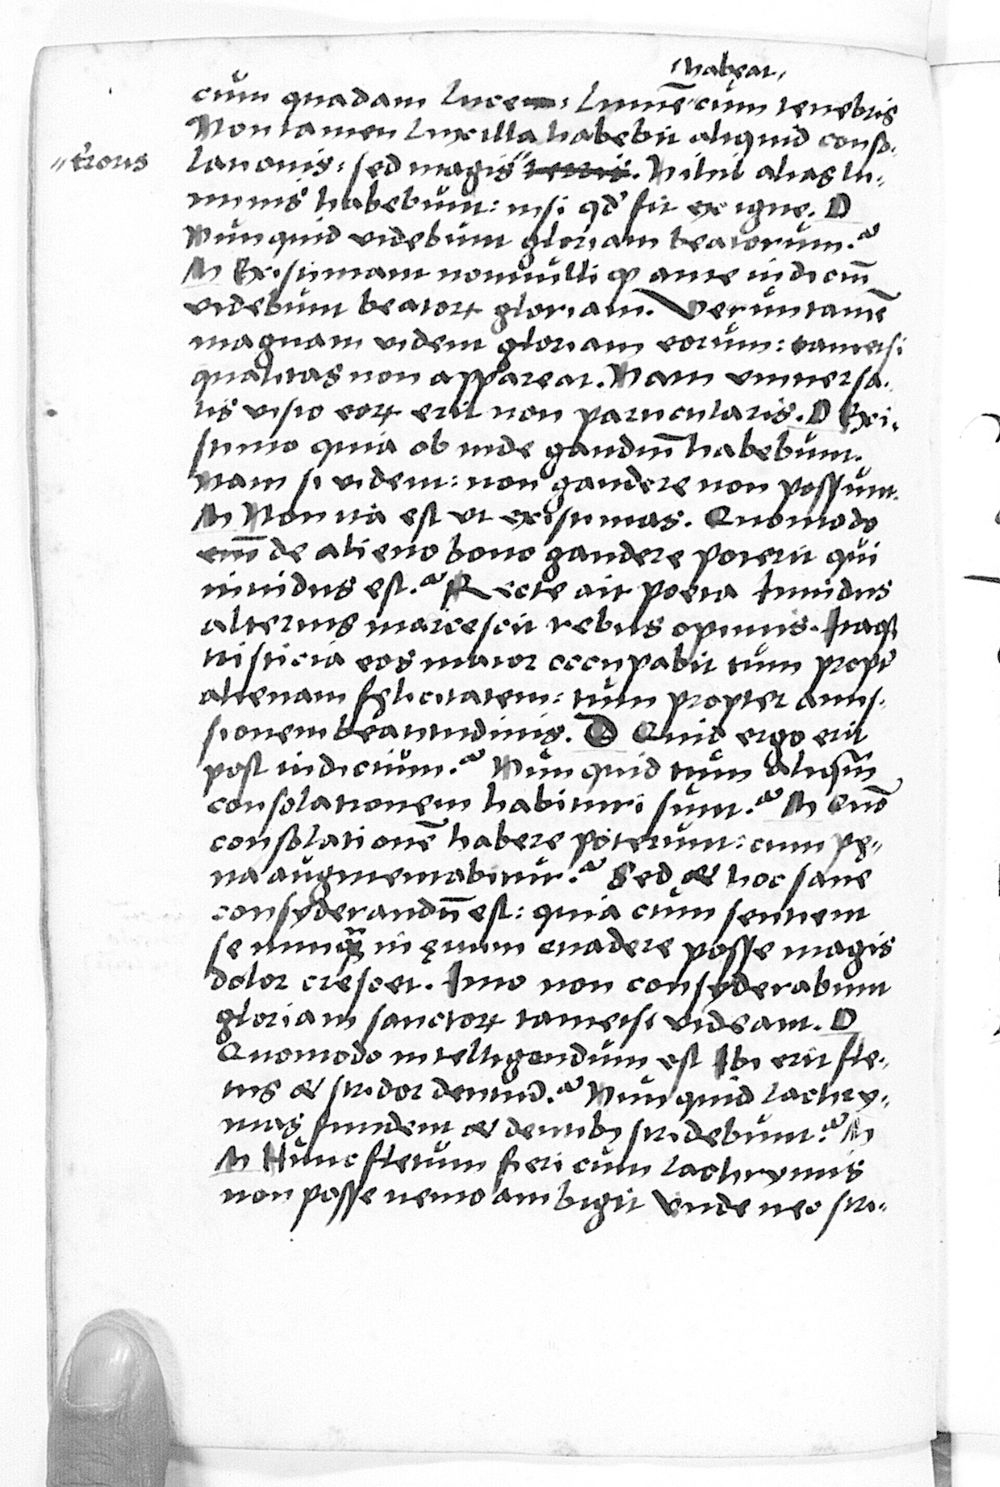 habeat
cum quadam luce: lumē cum tenebris
Non tamen lux illa habebit aliquid conso-
t̄roris
lationis: sed magis terris. Nihil alias lu-
minis habebunt: nisi qd̓ fit ex igne. D
Nunquid videbunt gloriam beatorum?
M Existimant nonnulli ꝙ ante iudiciū
videbunt beatoꝝ gloriam. Veruntamē
magnam vident gloriam eorum: tametsi
qualitas non appareat. Nam vniuersa-
lis visio eoꝝ erit non particularis. D Exi-
stimo quia ob inde gaudiū habebunt.
Nam si vident: non gaudere non possunt.
M Non ita est vt existimas. Quomodo
eni̅ de alieno bono gaudere poterit qui
inuidus est? Recte ait poeta Inuidus
alterius marcescit rebus opimis. Itaqꝫ
tristicia eos maior occupabit tum propt̓
alienam felicitatem: tum propter amis-
sionem beatitudinis. D Quid ergo erit
post iudicium? Nunquid tum aliquā
consolationem habituri sunt? M Quō
consolationē habere poterunt: cum pę-
na augmentabitur? Sed & hoc sane
consyderandū est: quia cum sentient
se nunqꝫ in ęuum euadere posse magis
dolor crescet. Imo non consyderabunt
gloriam sanctoꝝ tametsi videant. D
Quomodo intelligendum est Ibi erit fle-
tus & stridor dentiū? Nunquid lachry-
mas fundent & dentibꝫ stridebunt? M
M Hunc fletum fieri cum lachrymis
non posse nemo ambigit Vnde nec stri-